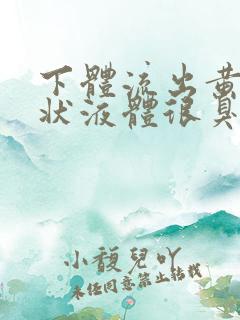 下體流出黃
狀液體很臭
小馥兒吖
未任同意禁止轉載